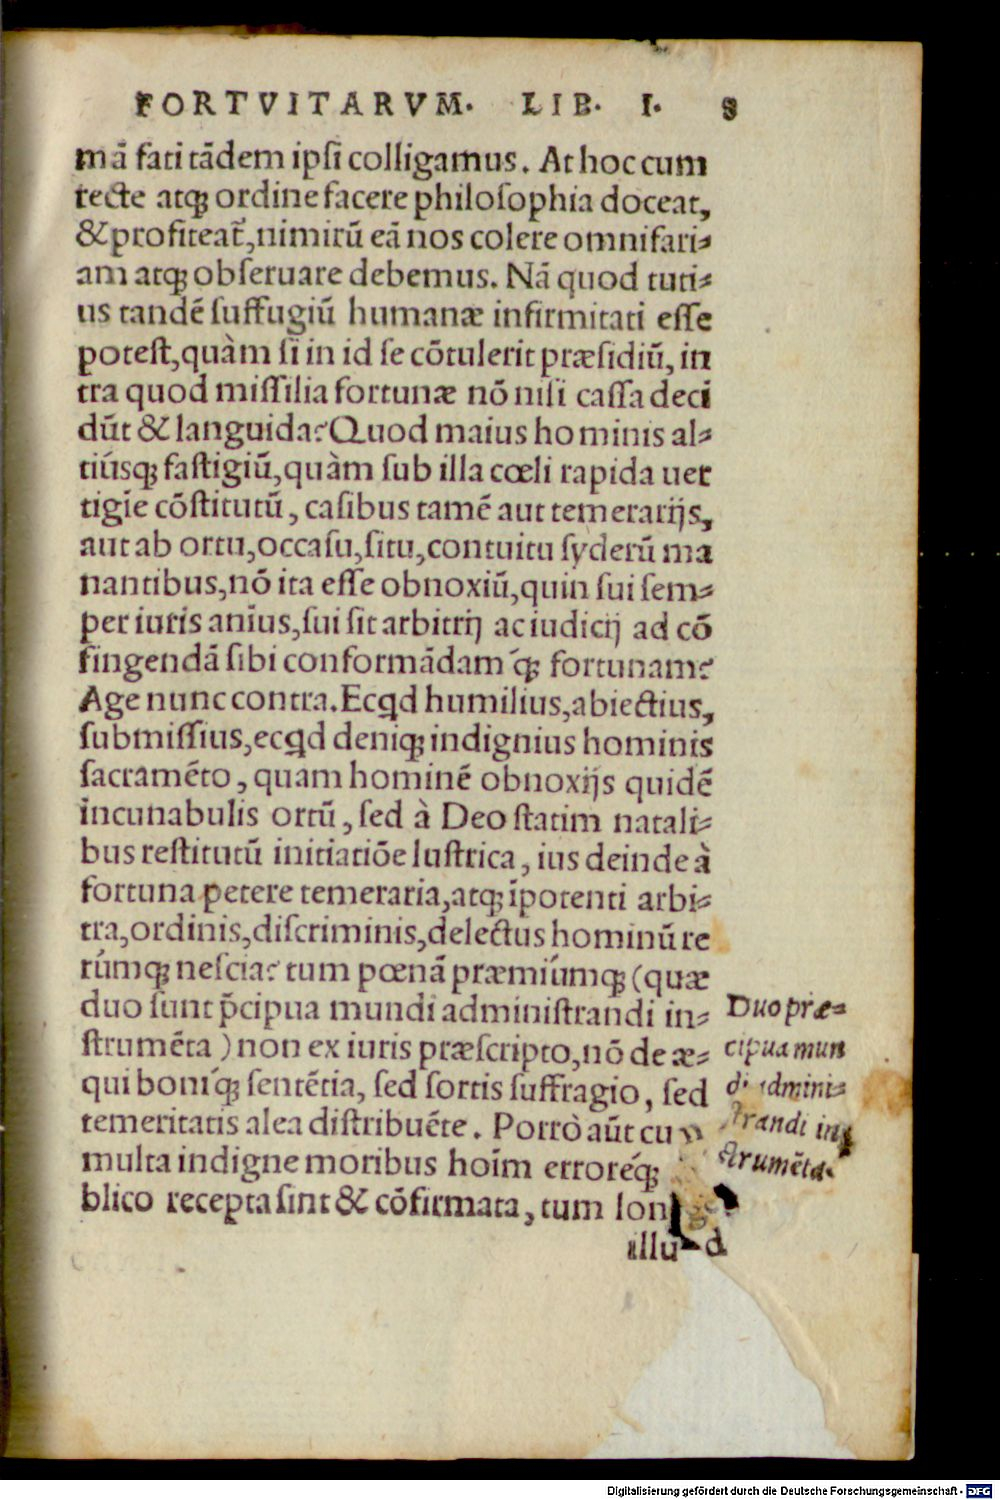 FORTVITARVM. LIB. I. 8
mā fati tādem ipsi colligamus. At hoc cum
recte atq; ordine facere philosophia doceat,
& profiteat᷑, nimirū eā nos colere omnifari-
am atq; obseruare debemus. Nā quod tuti-
us tandē suffugiū humanæ infirmitati esse
potest, quàm si in id se cōtulerit præsidiū, in
tra quod missilia fortunæ nō nisi cassa deci
dūt & languida? Quod maius hominis al-
tiúsq; fastigiū, quàm sub illa cœli rapida uer
tigīe cōstitutū, casibus tamē aut temerarijs,
aut ab ortu, occasu, situ, contuitu syderū ma
nantibus, nō ita esse obnoxiū, quin sui sem-
per iuris anīus, sui sit arbitrij ac iudicij ad cō
fingendā sibi conformādam´q; fortunam?
Age nunc contra. Ecqd humilius, abiectius,
submissius, ecqd deniq; indignius hominis
sacramēto, quam hominē obnoxijs quidē
incunabulis ortū, sed à Deo statim natali-
bus restitutū initiatiōe lustrica, ius deinde à
fortuna petere temeraria, atq; īpotenti arbi-
tra, ordinis, discriminis, delectus hominū re
rúmq; nescia? tum pœnā præmiúmq; (quæ
duo sunt p̄cipua mundi administrandi in-
strumēta) non ex iuris præscripto, nō de æ-
qui boni´q; sentētia, sed sortis suffragio, sed
temeritatis alea distribuēte. Porrò aūt cum
multa indigne moribus hoīm erroré´q;
blico recepta sint & cōfirmata, tum longe
illud
Duo præ-
cipua mun
di admini-
strandi in
strumēta.
Digitalisierung gefördert durch die Deutsche Forschungsgemeinschaft - DFG